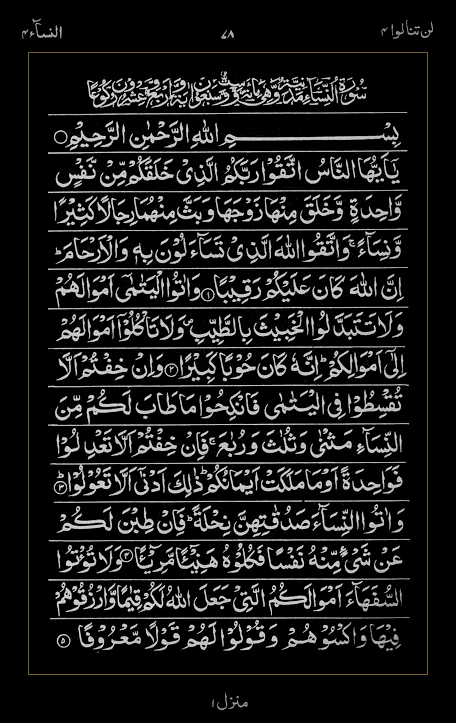 لن تنالوا ۴ ۷۸ النسآء ۴
سُوْرَةُ النِّسَآءِ مَدَنِيَّةٌ وَّهِىَ مِائَةٌ وَّسِتٌّ وَّسَبْعُوْنَ اٰيَةً وَّاَرْبَعَةٌ وَّعِشْرُوْنَ رُكُوْعًا
بِسْمِ اللّٰهِ الرَّحْمٰنِ الرَّحِيْمِ ○
يٰۤاَيُّهَا النَّاسُ اتَّقُوْا رَبَّكُمُ الَّذِىْ خَلَقَكُمْ مِّنْ نَّفْسٍ
وَّاحِدَةٍ وَّخَلَقَ مِنْهَا زَوْجَهَا وَبَثَّ مِنْهُمَا رِجَالًا كَثِيْرًا
وَّنِسَآءً ۚ وَاتَّقُوا اللّٰهَ الَّذِىْ تَسَآءَلُوْنَ بِهٖ وَالْاَرْحَامَ ؕ
اِنَّ اللّٰهَ كَانَ عَلَيْكُمْ رَقِيْبًا ﴿۱﴾ وَاٰتُوا الْيَتٰمٰٓى اَمْوَالَهُمْ
وَلَا تَتَبَدَّلُوا الْخَبِيْثَ بِالطَّيِّبِ ۪ وَلَا تَاْكُلُوْۤا اَمْوَالَهُمْ
اِلٰٓى اَمْوَالِكُمْ ؕ اِنَّهٗ كَانَ حُوْبًا كَبِيْرًا ﴿۲﴾ وَاِنْ خِفْتُمْ اَلَّا
تُقْسِطُوْا فِى الْيَتٰمٰى فَانْكِحُوْا مَا طَابَ لَكُمْ مِّنَ
النِّسَآءِ مَثْنٰى وَثُلٰثَ وَرُبٰعَ ۚ فَاِنْ خِفْتُمْ اَلَّا تَعْدِلُوْا
فَوَاحِدَةً اَوْ مَا مَلَكَتْ اَيْمَانُكُمْ ؕ ذٰلِكَ اَدْنٰٓى اَلَّا تَعُوْلُوْا ؕ﴿۳﴾
وَاٰتُوا النِّسَآءَ صَدُقٰتِهِنَّ نِحْلَةً ؕ فَاِنْ طِبْنَ لَكُمْ
عَنْ شَىْءٍ مِّنْهُ نَفْسًا فَكُلُوْهُ هَنِيْٓئًا مَّرِيْٓئًا ﴿۴﴾ وَلَا تُؤْتُوا
السُّفَهَآءَ اَمْوَالَكُمُ الَّتِىْ جَعَلَ اللّٰهُ لَكُمْ قِيٰمًا وَّارْزُقُوْهُمْ
فِيْهَا وَاكْسُوْهُمْ وَقُوْلُوْا لَهُمْ قَوْلًا مَّعْرُوْفًا ﴿۵﴾
منزل ۱